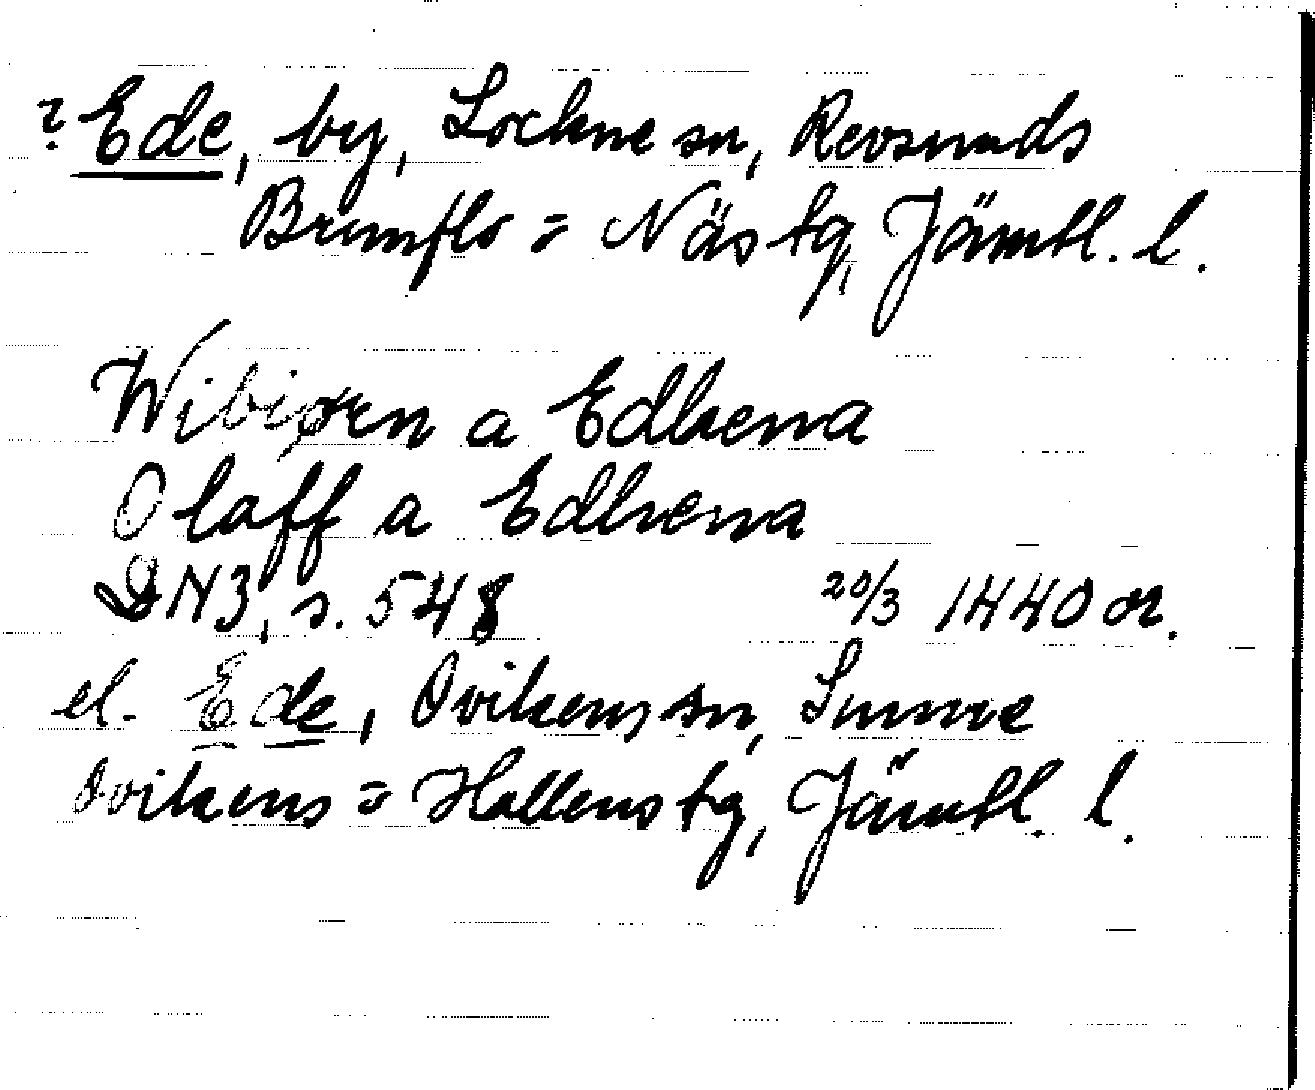 ? Ede, by, Lockne sn, Revsunds
Brunflo = Näs tg, Jämtl. l.
Wibiørn a Edhena
Olaff a Edhena
DN3, s. 548 20/3 1440 or.
el. Ede, Ovikens sn, Sunne
Ovikens = Hallens tg, Jämtl. l.